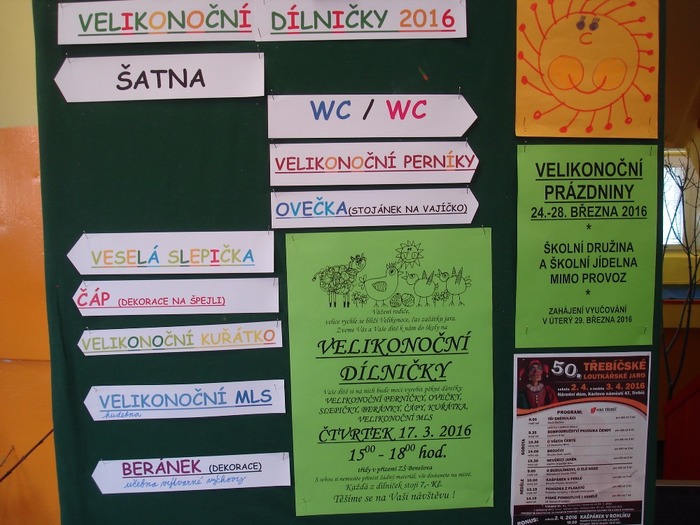 VELIKONOČNÍ DÍLNIČKY 2016
ŠATNA
WC / WC
VELIKONOČNÍ PERNÍKY
OVEČKA (STOJÁNEK NA VAJÍČKO)
VESELÁ SLEPIČKA
ČÁP (DEKORACE NA ŠPEJLI)
VELIKONOČNÍ KUŘÁTKO
VELIKONOČNÍ MLS
hudebna
BERÁNEK (DEKORACE)
učebna výtvarné výchovy
Vážení rodiče,
velice rychle se blíží Velikonoce, čas začátku jara.
Zveme Vás a Vaše dítě k nám do školy na
VELIKONOČNÍ
DÍLNIČKY
Vaše dítě si na nich bude moci vyrobit pěkné dárečky:
VELIKONOČNÍ PERNÍČKY, OVEČKY,
SLEPIČKY, BERÁNKY, ČÁPY, KUŘÁTKA,
VELIKONOČNÍ MLS
ČTVRTEK 17. 3. 2016
1500 - 1800 hod.
třídy v přízemí ZŠ Benešova
S sebou si nemusíte přinést žádný materiál, vše dostanete na místě.
Každá z dílniček stojí 7,- Kč.
Těšíme se na Vaši návštěvu !
VELIKONOČNÍ
PRÁZDNINY
24.-28. BŘEZNA 2016
*
ŠKOLNÍ DRUŽINA
A ŠKOLNÍ JÍDELNA
MIMO PROVOZ
*
ZAHÁJENÍ VYUČOVÁNÍ
V ÚTERÝ 29. BŘEZNA 2016
50. TŘEBÍČSKÉ
LOUTKÁŘSKÉ JARO
sobota 2. 4. a neděle 3. 4. 2016
Národní dům, Karlovo náměstí 47, Třebíč
PROGRAM:
SOBOTA
9.30
O VŠECH ČERTĚ
BROUČCI
NEDĚLE
KAŠPÁREK V PEKLE
BONUS:
KAŠPÁREK V ROHLÍKU